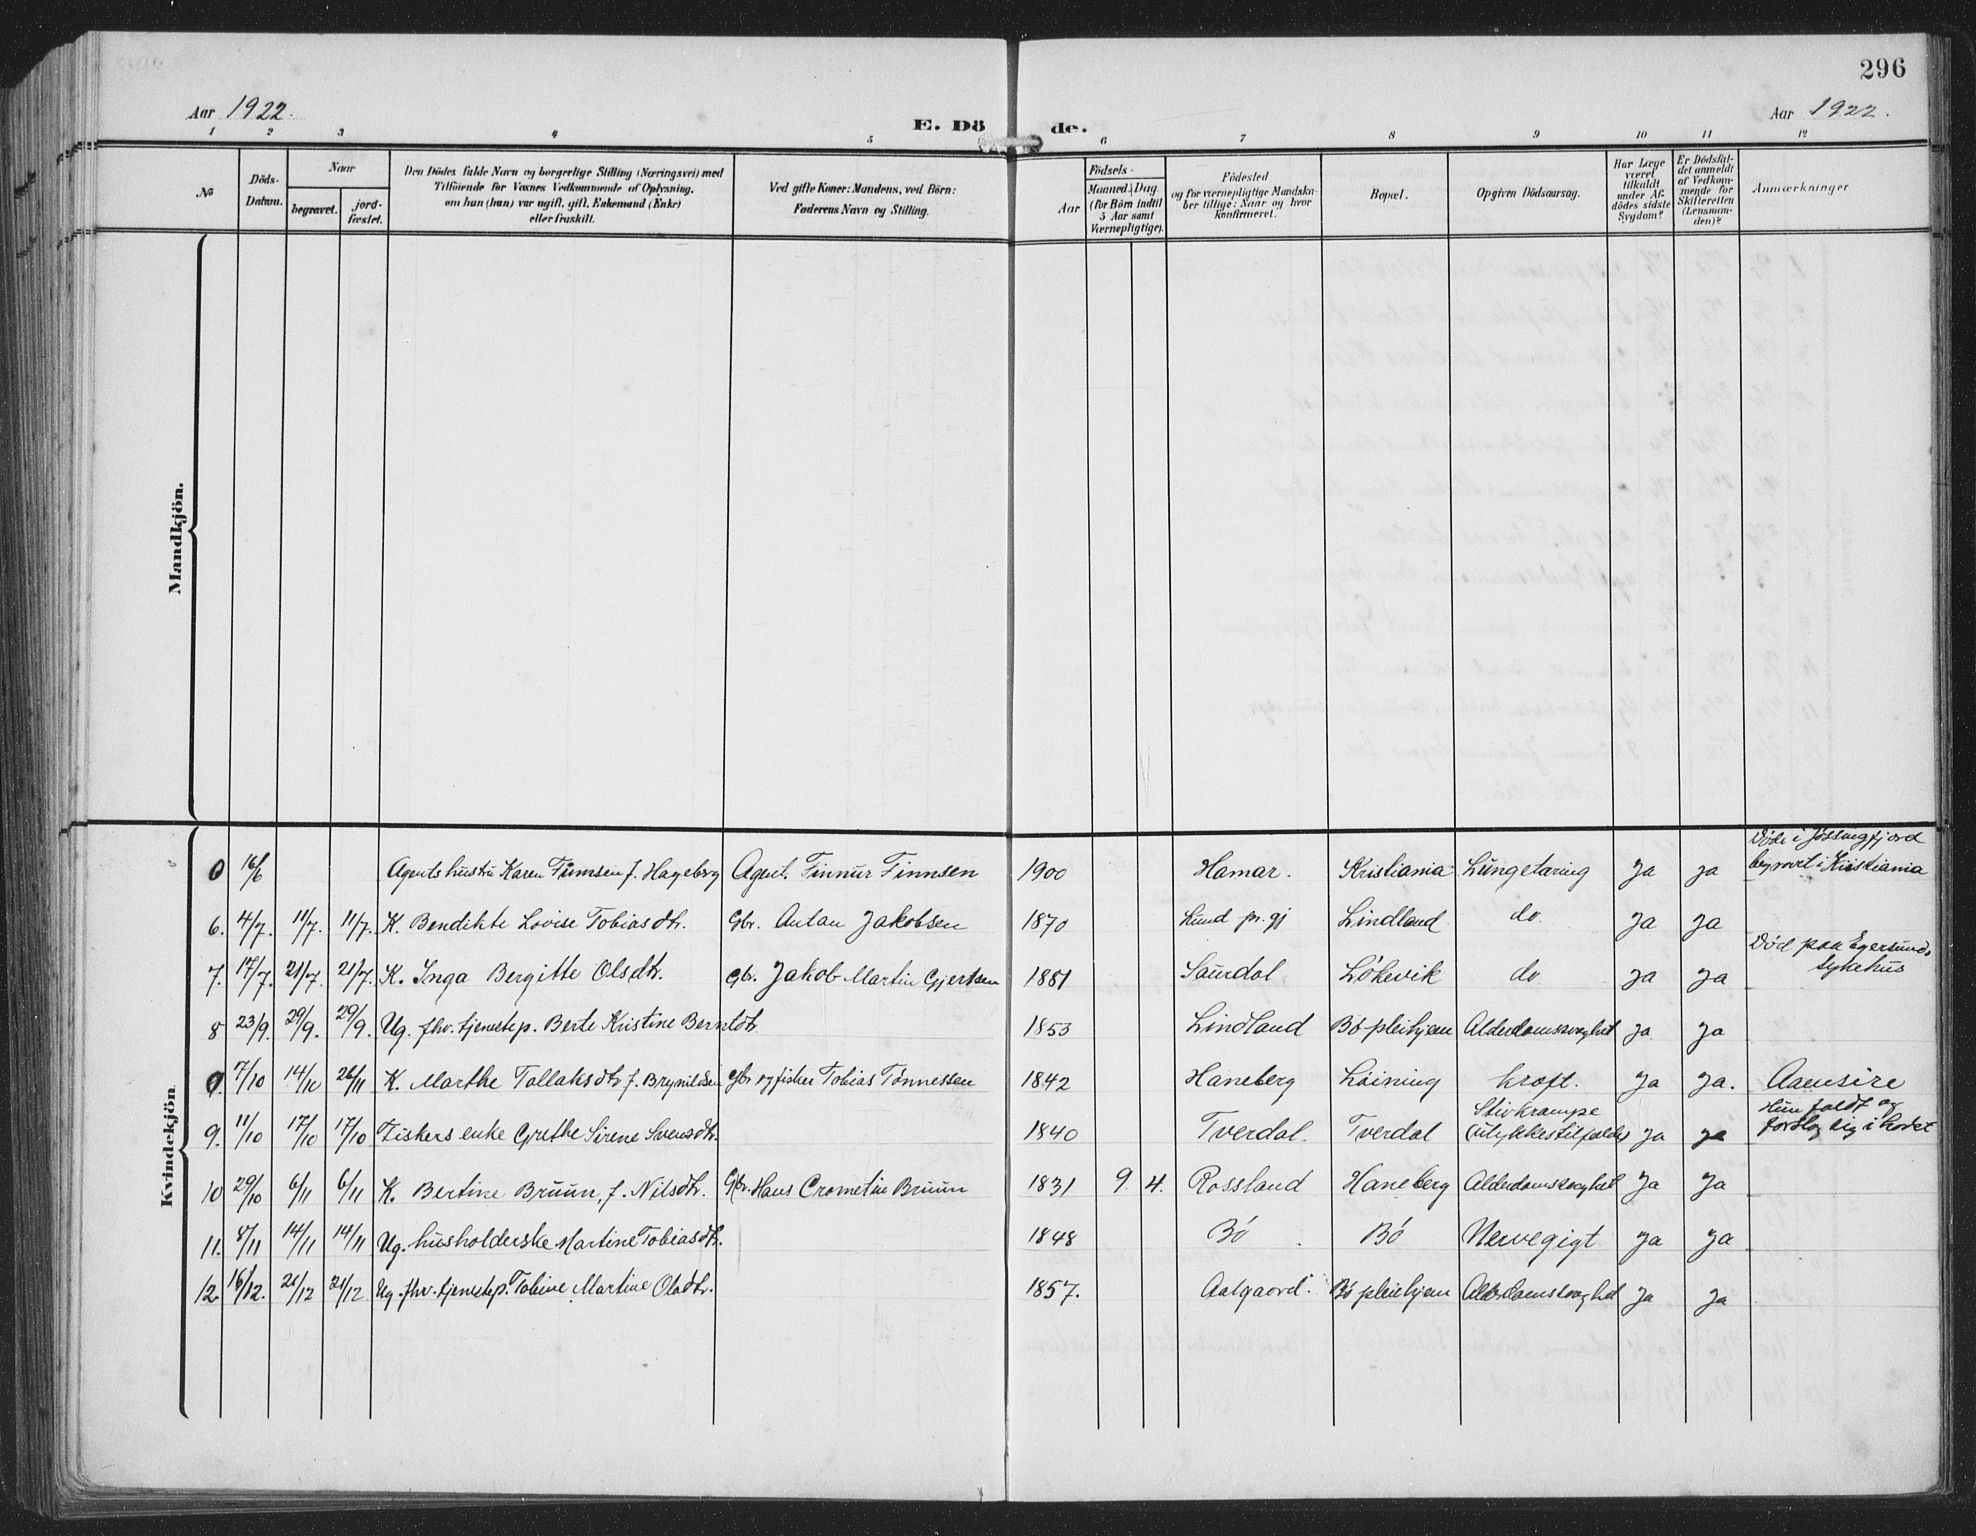 296
Aar 1922.
E. Dö
de.
Aar 1922.
1 2 3 4 5 6 7 8 9 10 11 12
No
Döds-
Datum.
Naar
begravet.
jord-
fæstet.
Den Dödes fulde Navn og borgerlige Stilling (Næringsvei) med
Tilföiende for Voxnes Vedkommende af Oplysning,
om han (hun) var ugift, gift, Enkemand (Enke)
eller fraskilt.
Ved gifte Koner: Mandens, ved Börn:
Faderens Navn og Stilling.
Aar
Födsels-
Maaned. Dag.
(for Börn indtil
5 Aar samt
Værnepligtige).
Födested
og for værnepligtige Mandska-
ber tillige: Naar og hvor
Konfirmeret.
Bopæl.
Opgiven Dödsaarsag.
Har Læge
været
tilkaldt
under Af-
dödes sidste
Sygdom?
Er Dödsfal-
det anmeldt
af Vedkom-
mende for
Skifteretten
(Lensman-
den)?
Anmærkninger
Mandkjön.
Kvindekjön
0 16/6 Agents hustru Karen Finnsen f. Hageberg Agent. Finnur Finnsen 1900 Hamar. Kristiania Lungetæring Ja ja Døde i Jøssingfjord
begravet i Kristiania
6. 4/7. 11/7. 11/7. K. Bendikte Lovise Tobiasdtr. Gbr. Antan Jakobsen 1870 Lund pr. gj Lindland do. Ja Ja
7. 17/7. 21/7. 21/7. K. Inga Bergitte Olsdtr. Gbr. Jakob Martin Gjertsen 1881 Saurdal Løkevik do. Ja Ja Død paa Egersunds
sykehus
8 23/9. 29/9. 29/9. Ug. fhv. tjenestep. Berte Kristine Berntdtr 1853 Lindland Bø pleihjem Alderdomssvaghet Ja Ja
0. 7/10 14/10 26/11 K. Marthe Tollaksdtr f. Brynildsen gbr og fisker Tobias Tønnessen 1842 Haneberg Løining kræft. Ja Ja. Aaensire
9. 11/10 17/10 17/10 Fiskers enke Grethe Sirene Svensdtr. 1840 Tverdal. Tverdal Stivkrampe
(ulykkestilfælde) Ja Ja Hun faldt og
forslog sig i hodet
10 29/10 6/11 6/11 K. Bertine Bruun, f. Nilsdtr. Gbr. Hans Crometine Bruun 1831 9 4. Rossland Haneberg Alderdomssvaghet Ja Ja
11. 8/11 14/11 14/11 Ug. husholderske Martine Tobiasdtr. 1848 Bø Bø Nervegigt Ja Ja
12. 16/12. 21/12 21/12 Ug. fhv. tjenestep. Tobine Martine Olsdtr. 1857. Aalgaard. Bø pleiehjem Alderdomssvaghed Ja Ja